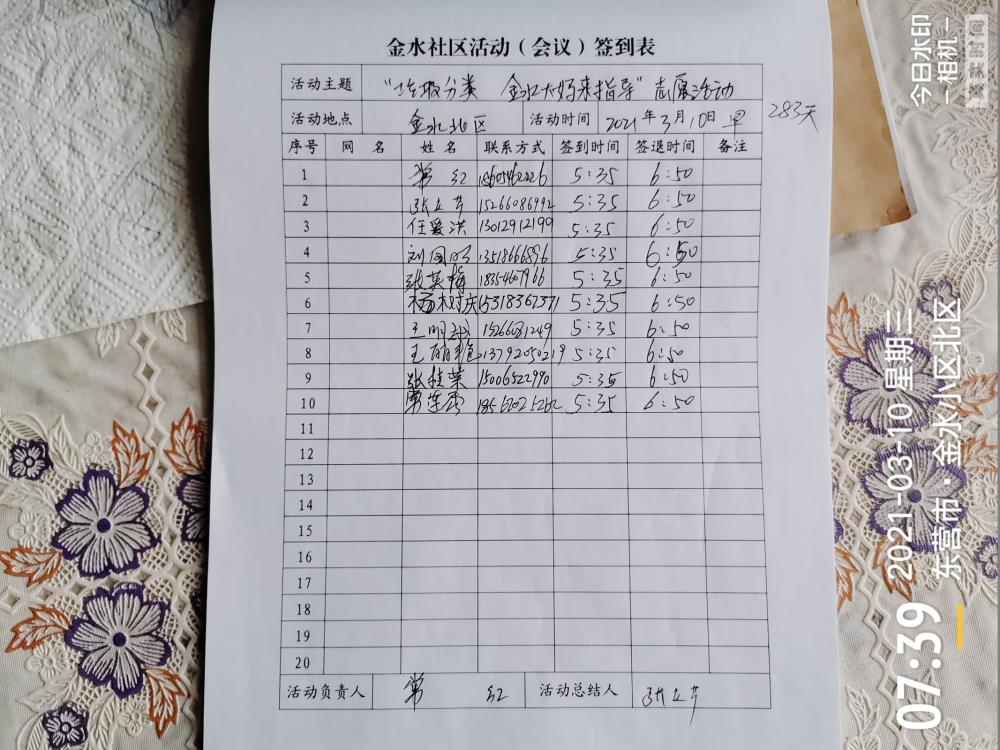 金水社区活动（会议）签到表
活动主题 “垃圾分类 金水大妈来指导”志愿活动
活动地点 金水北区 活动时间 2021年3月10日 早 283天
序号 网名 姓名 联系方式 签到时间 签退时间 备注
1 常红 5:35 6:50
2 张立芹 15266086992 5:35 6:50
3 任爱洪 13012912199 5:35 6:50
4 刘国 13518666896 5:35 6:50
5 张英梅 18354607966 5:35 6:50
6 杨树庆 15318367371 5:35 6:50
7 王明 15266031249 5:35 6:50
8 王丽艳 13792050219 5:35 6:50
9 张桂荣 15006522990 5:35 6:50
10 5:35 6:50
11
12
13
14
15
16
17
18
19
20
活动负责人 常红 活动总结人 张立芹
07:39
2021-03-10 星期三
东营市·金水小区北区
今日水印
-相机-
真实时间